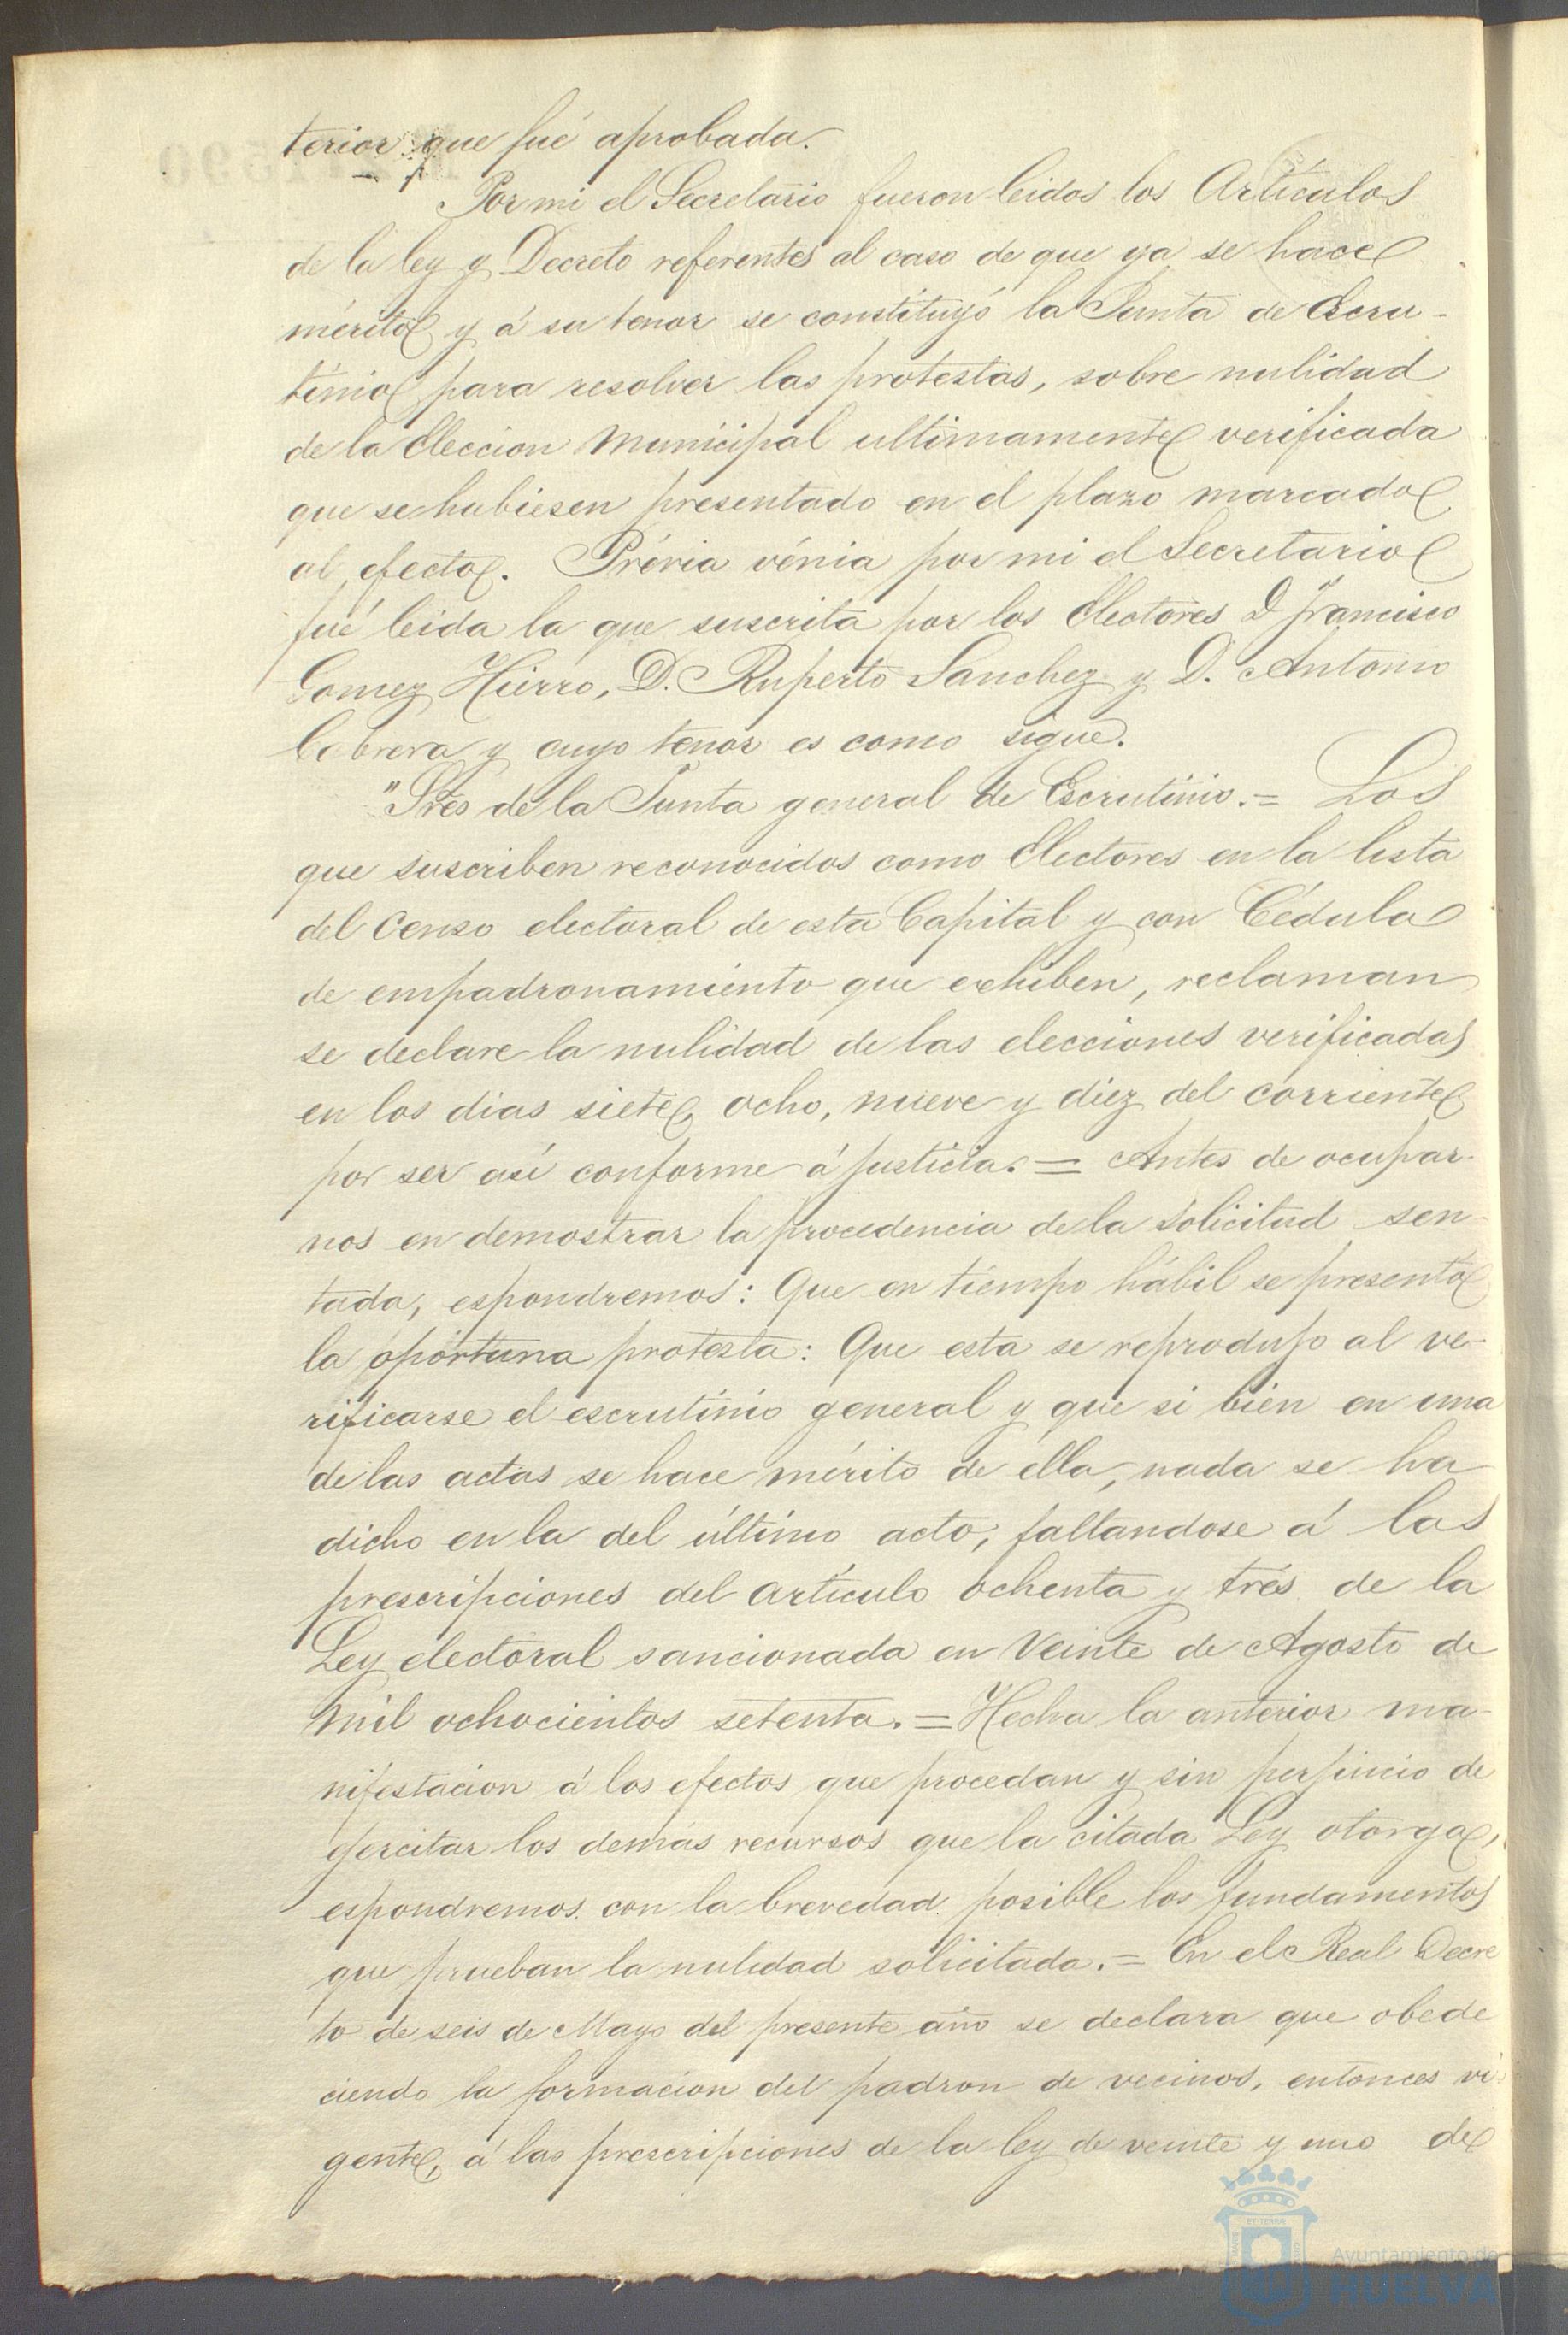 terior que fué aprobada.
Por mi el Secretario fueron leidos los Artículos
de la ley y Decreto referentes al caso de que ya se hace
mérito y á su tenor se constituyó la Junta de Escru-
tinio para resolver las protestas, sobre nulidad
de la Eleccion Municipal ultimamente verificada
que se hubiesen presentado en el plazo marcado
al efecto. Prévia vénia por mi el Secretario
fué leida la que suscrita por los Electores D. Francisco
Gomez Hierro, D. Ruperto Sanchez y D. Antonio
Cabrera y cuyo tenor es como sigue.
"Sres de la Junta general de Escrutinio.= Los
que suscriben reconocidos como Electores en la lista
del Censo electoral de esta Capital y con Cédula
de empadronamiento que exhiben, reclaman
se declare la nulidad de las elecciones verificadas
en los dias siete, ocho, nueve y diez del corriente,
por ser así conforme á justicia.= Antes de ocupar-
nos en demostrar la procedencia de la solicitud sen-
tada, espondremos: Que en tiempo hábil se presentó
la oportuna protesta: Que esta se reprodujo al ve-
rificarse el escrutinio general y que si bien en una
de las actas se hace mérito de ella, nada se ha
dicho en la del último acto, faltandose á las
prescripciones del artículo ochenta y trés de la
Ley electoral sancionada en Veinte de Agosto de
mil ochocientos setenta.= Hecha la anterior ma-
nifestacion á los efectos que procedan y sin perjuicio de
ejercitar los demás recursos que la citada Ley otorga,
espondremos con la brevedad posible los fundamentos
que prueban la nulidad solicitada.= En el Real Decre
to de seis de Mayo del presente año se declara que obede
ciendo la formacion del padron de vecinos, entonces vi
gente, á las prescripciones de la ley de veinte y uno de
Ayuntamiento de
HUELVA